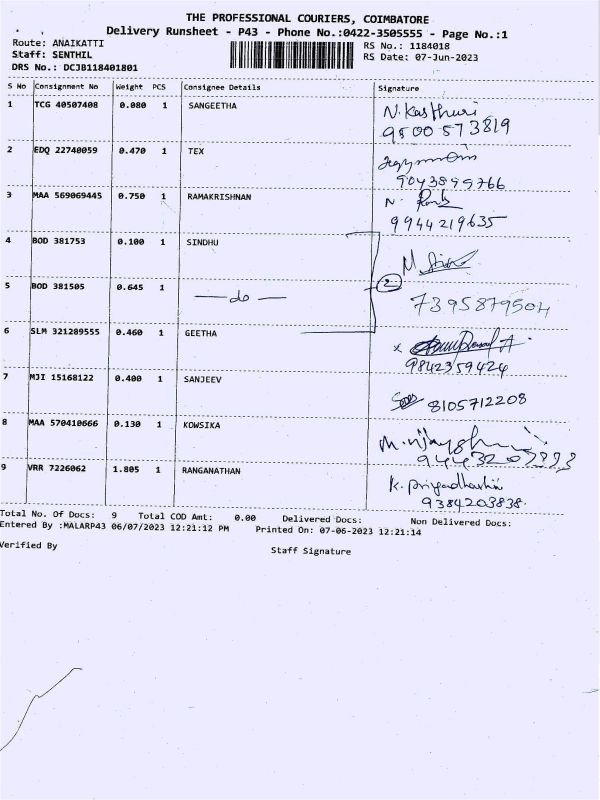 THE PROFESSIONAL COURIERS, COIMBATORE
Delivery Runsheet - P43 - Phone No.:0422-3505555 - Page No.:1
Route: ANAIKATTI
Staff: SENTHIL
DRS No.: DCJB118401801
RS No.: 1184018
RS Date: 07-Jun-2023
S No Consignment No Weight PCS Consignee Details Signature
1 TCG 40507408 0.080 1 SANGEETHA N. Kasthuri
9500573819
2 EDQ 22740059 0.470 1 TEX
9043899766
3 MAA 569069445 0.750 1 RAMAKRISHNAN N.
9944219635
4 BOD 381753 0.100 1 SINDHU M
5 BOD 381505 0.645 1 — do — 2
7395879504
6 SLM 321289555 0.460 1 GEETHA x
9842359424
7 MJI 15168122 0.400 1 SANJEEV 8105712208
8 MAA 570410666 0.130 1 KOWSIKA
9 VRR 7226062 1.805 1 RANGANATHAN K. Priyadharshini
9384203838.
Total No. Of Docs: 9 Total COD Amt: 0.00 Delivered Docs: Non Delivered Docs:
Entered By :MALARP43 06/07/2023 12:21:12 PM Printed On: 07-06-2023 12:21:14
Verified By Staff Signature